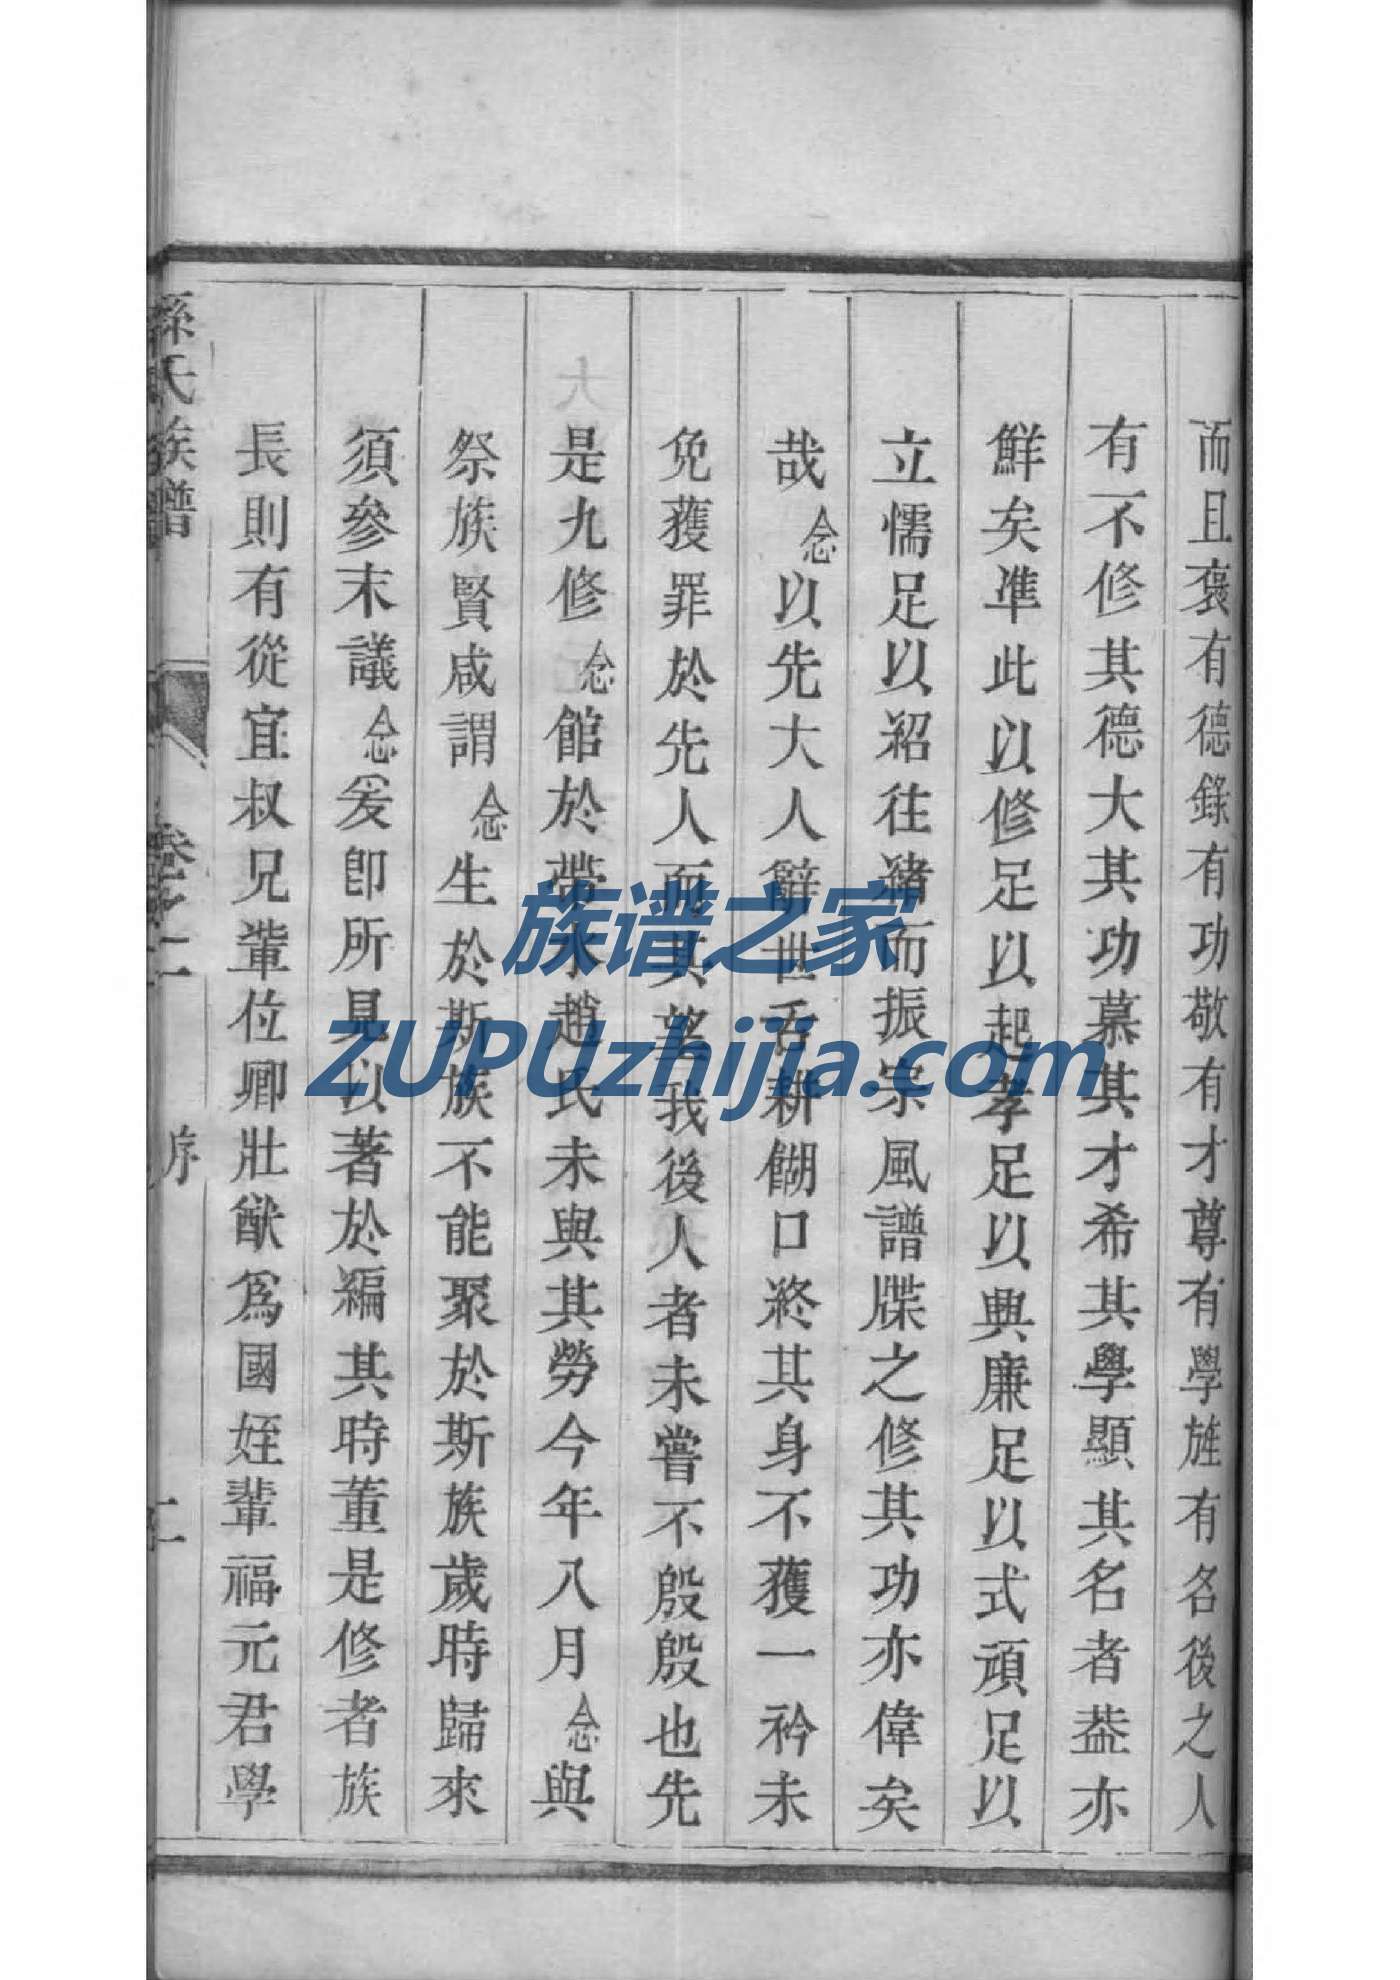 而且褒有德錄有功敬有才尊有學旌有名後之人
有不修其德大其功慕其才希其學顯其名者葢亦
鮮矣凖此以修足以起孝足以興廉足以式頑足以
立懦足以紹往緒而振宗風譜牒之修其功亦偉矣
哉念以先大人辭世舌耕餬口終其身不獲一衿未
免獲罪於先人而其望我後人者未嘗不殷殷也先
是九修念館於帶水趙氏未與其勞今年八月念與
祭族賢咸謂念生於斯族不能聚於斯族歲時歸來
須參末議念爰卽所見以著於編其時董是修者族
長則有從宜叔兄輩位卿壯猷爲國姪輩福元君學
孫氏族譜 卷之 序
族谱之家
ZUPUzhijia.com